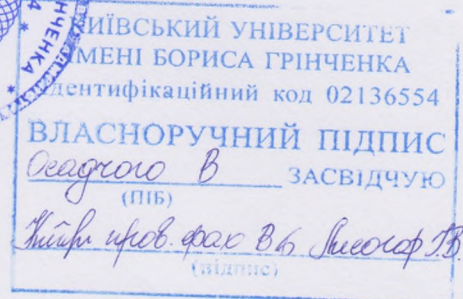 КИЇВСЬКИЙ УНІВЕРСИТЕТ
ІМЕНІ БОРИСА ГРІНЧЕНКА
ідентифікаційний код 02136554
ВЛАСНОРУЧНИЙ ПІДПИС
Осадчого В ЗАСВІДЧУЮ
(ПІБ)
пров. фах
(підпис)
НЧЕНКА